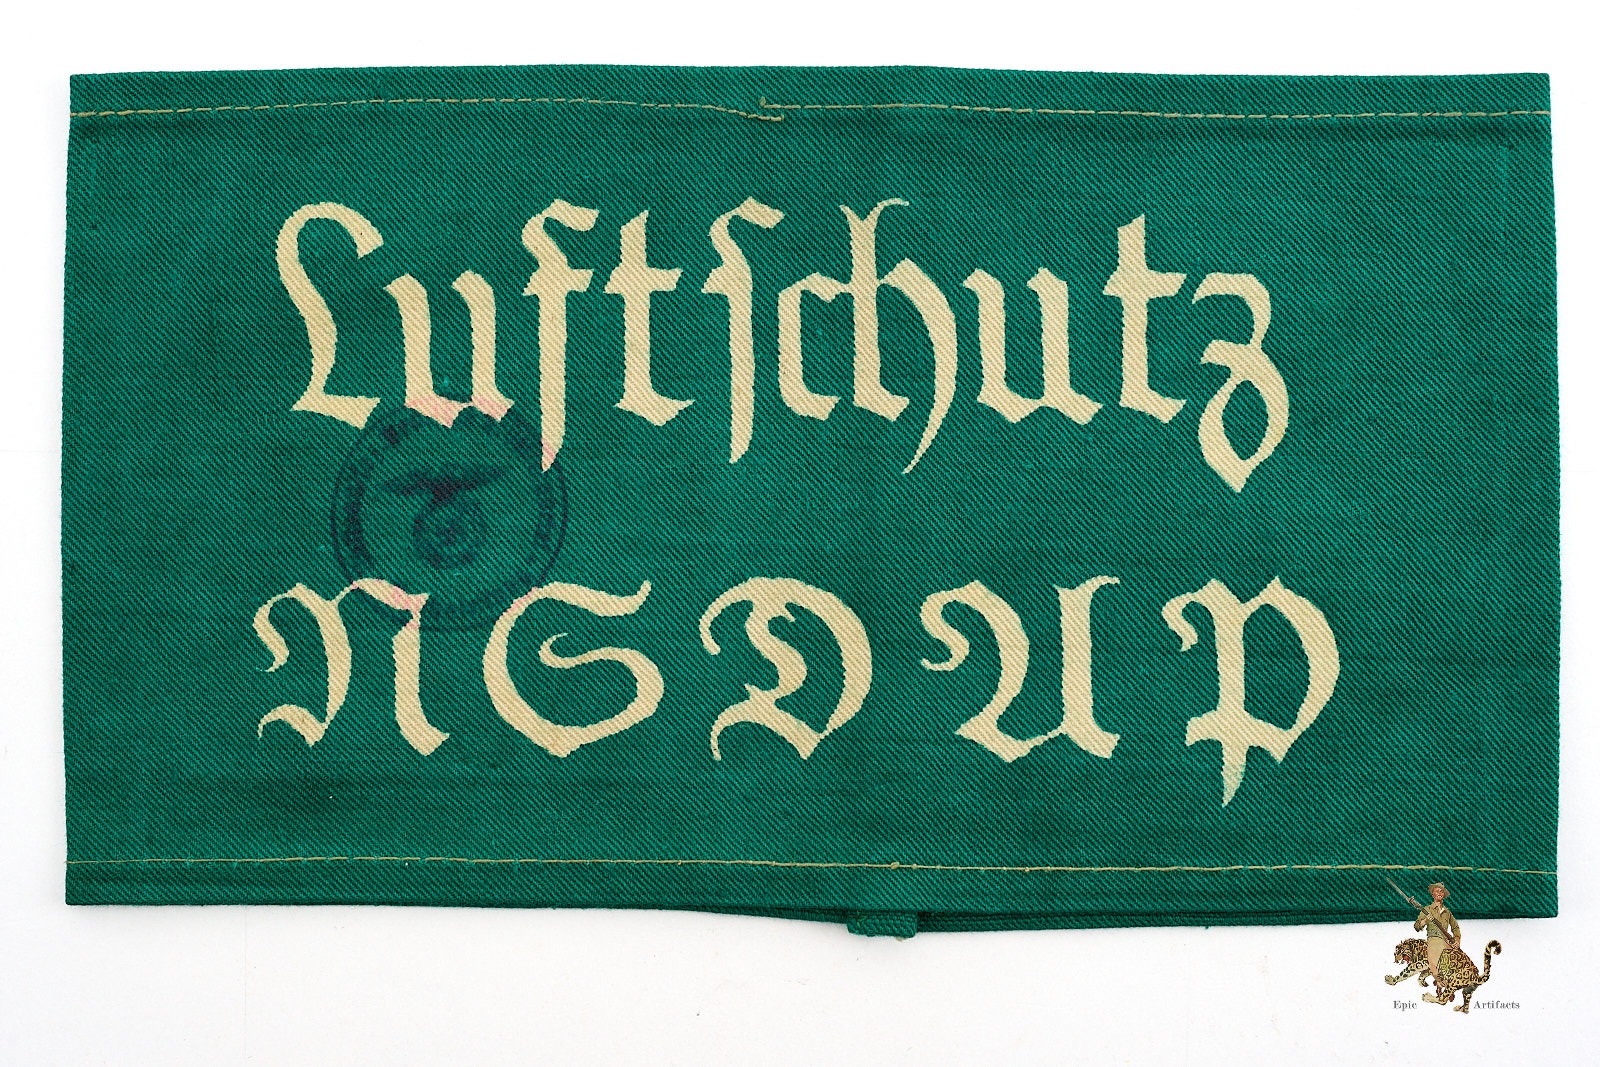 Luftschutz
NSDAP
Epic Artifacts